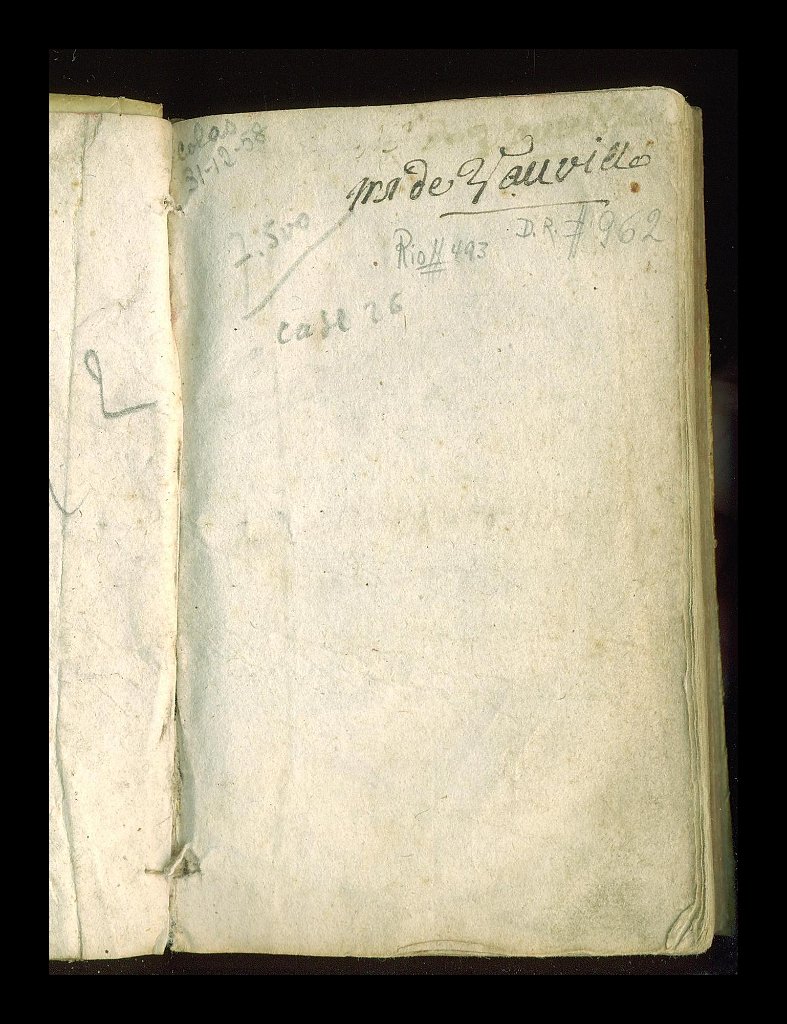 colas
31-12-58
mr de Vauville
7.500
D.R. # 962
Rio # 493
case 26
2